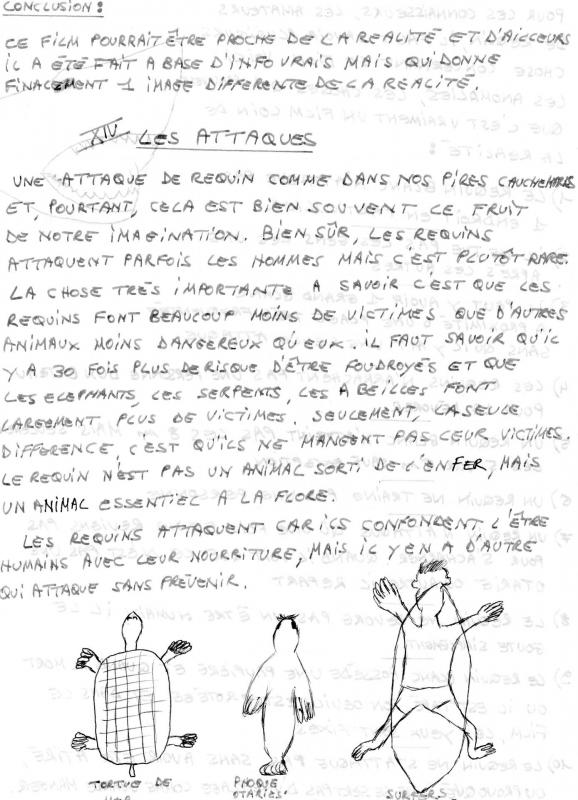 CONCLUSION :
CE FILM POURRAIT ÊTRE PROCHE DE LA REALITÉ ET D'AILLEURS
IL A ÉTÉ FAIT A BASE D'INFO VRAIS MAIS QUI DONNE
FINALEMENT 1 IMAGE DIFFERENTE DE LA REALITÉ.
XIV LES ATTAQUES
UNE ATTAQUE DE REQUIN COMME DANS NOS PIRES CAUCHEMARS
ET, POURTANT, CELA EST BIEN SOUVENT LE FRUIT
DE NOTRE IMAGINATION. BIEN SÛR, LES REQUINS
ATTAQUENT PARFOIS LES HOMMES MAIS C'EST PLUTÔT RARE.
LA CHOSE TRÈS IMPORTANTE A SAVOIR C'EST QUE LES
REQUINS FONT BEAUCOUP MOINS DE VICTIMES QUE D'AUTRES
ANIMAUX MOINS DANGEREUX QU'EUX. IL FAUT SAVOIR QU'IL
Y A 30 FOIS PLUS DE RISQUE D'ÊTRE FOUDROYÉS ET QUE
LES ELEPHANTS, LES SERPENTS, LES ABEILLES FONT
LARGEMENT PLUS DE VICTIMES. SEULEMENT, LA SEULE
DIFFERENCE, C'EST QU'ILS NE MANGENT PAS LEUR VICTIMES.
LE REQUIN N'EST PAS UN ANIMAL SORTI DE L'ENFER, MAIS
UN ANIMAL ESSENTIEL A LA FLORE.
LES REQUINS ATTAQUENT CAR ILS CONFONDENT L'ÊTRE
HUMAINS AVEC LEUR NOURRITURE, MAIS IL Y EN A D'AUTRE
QUI ATTAQUE SANS PRÉVENIR.
TORTUE DE
MER
PHOQUE
OTARIES
SURFERS